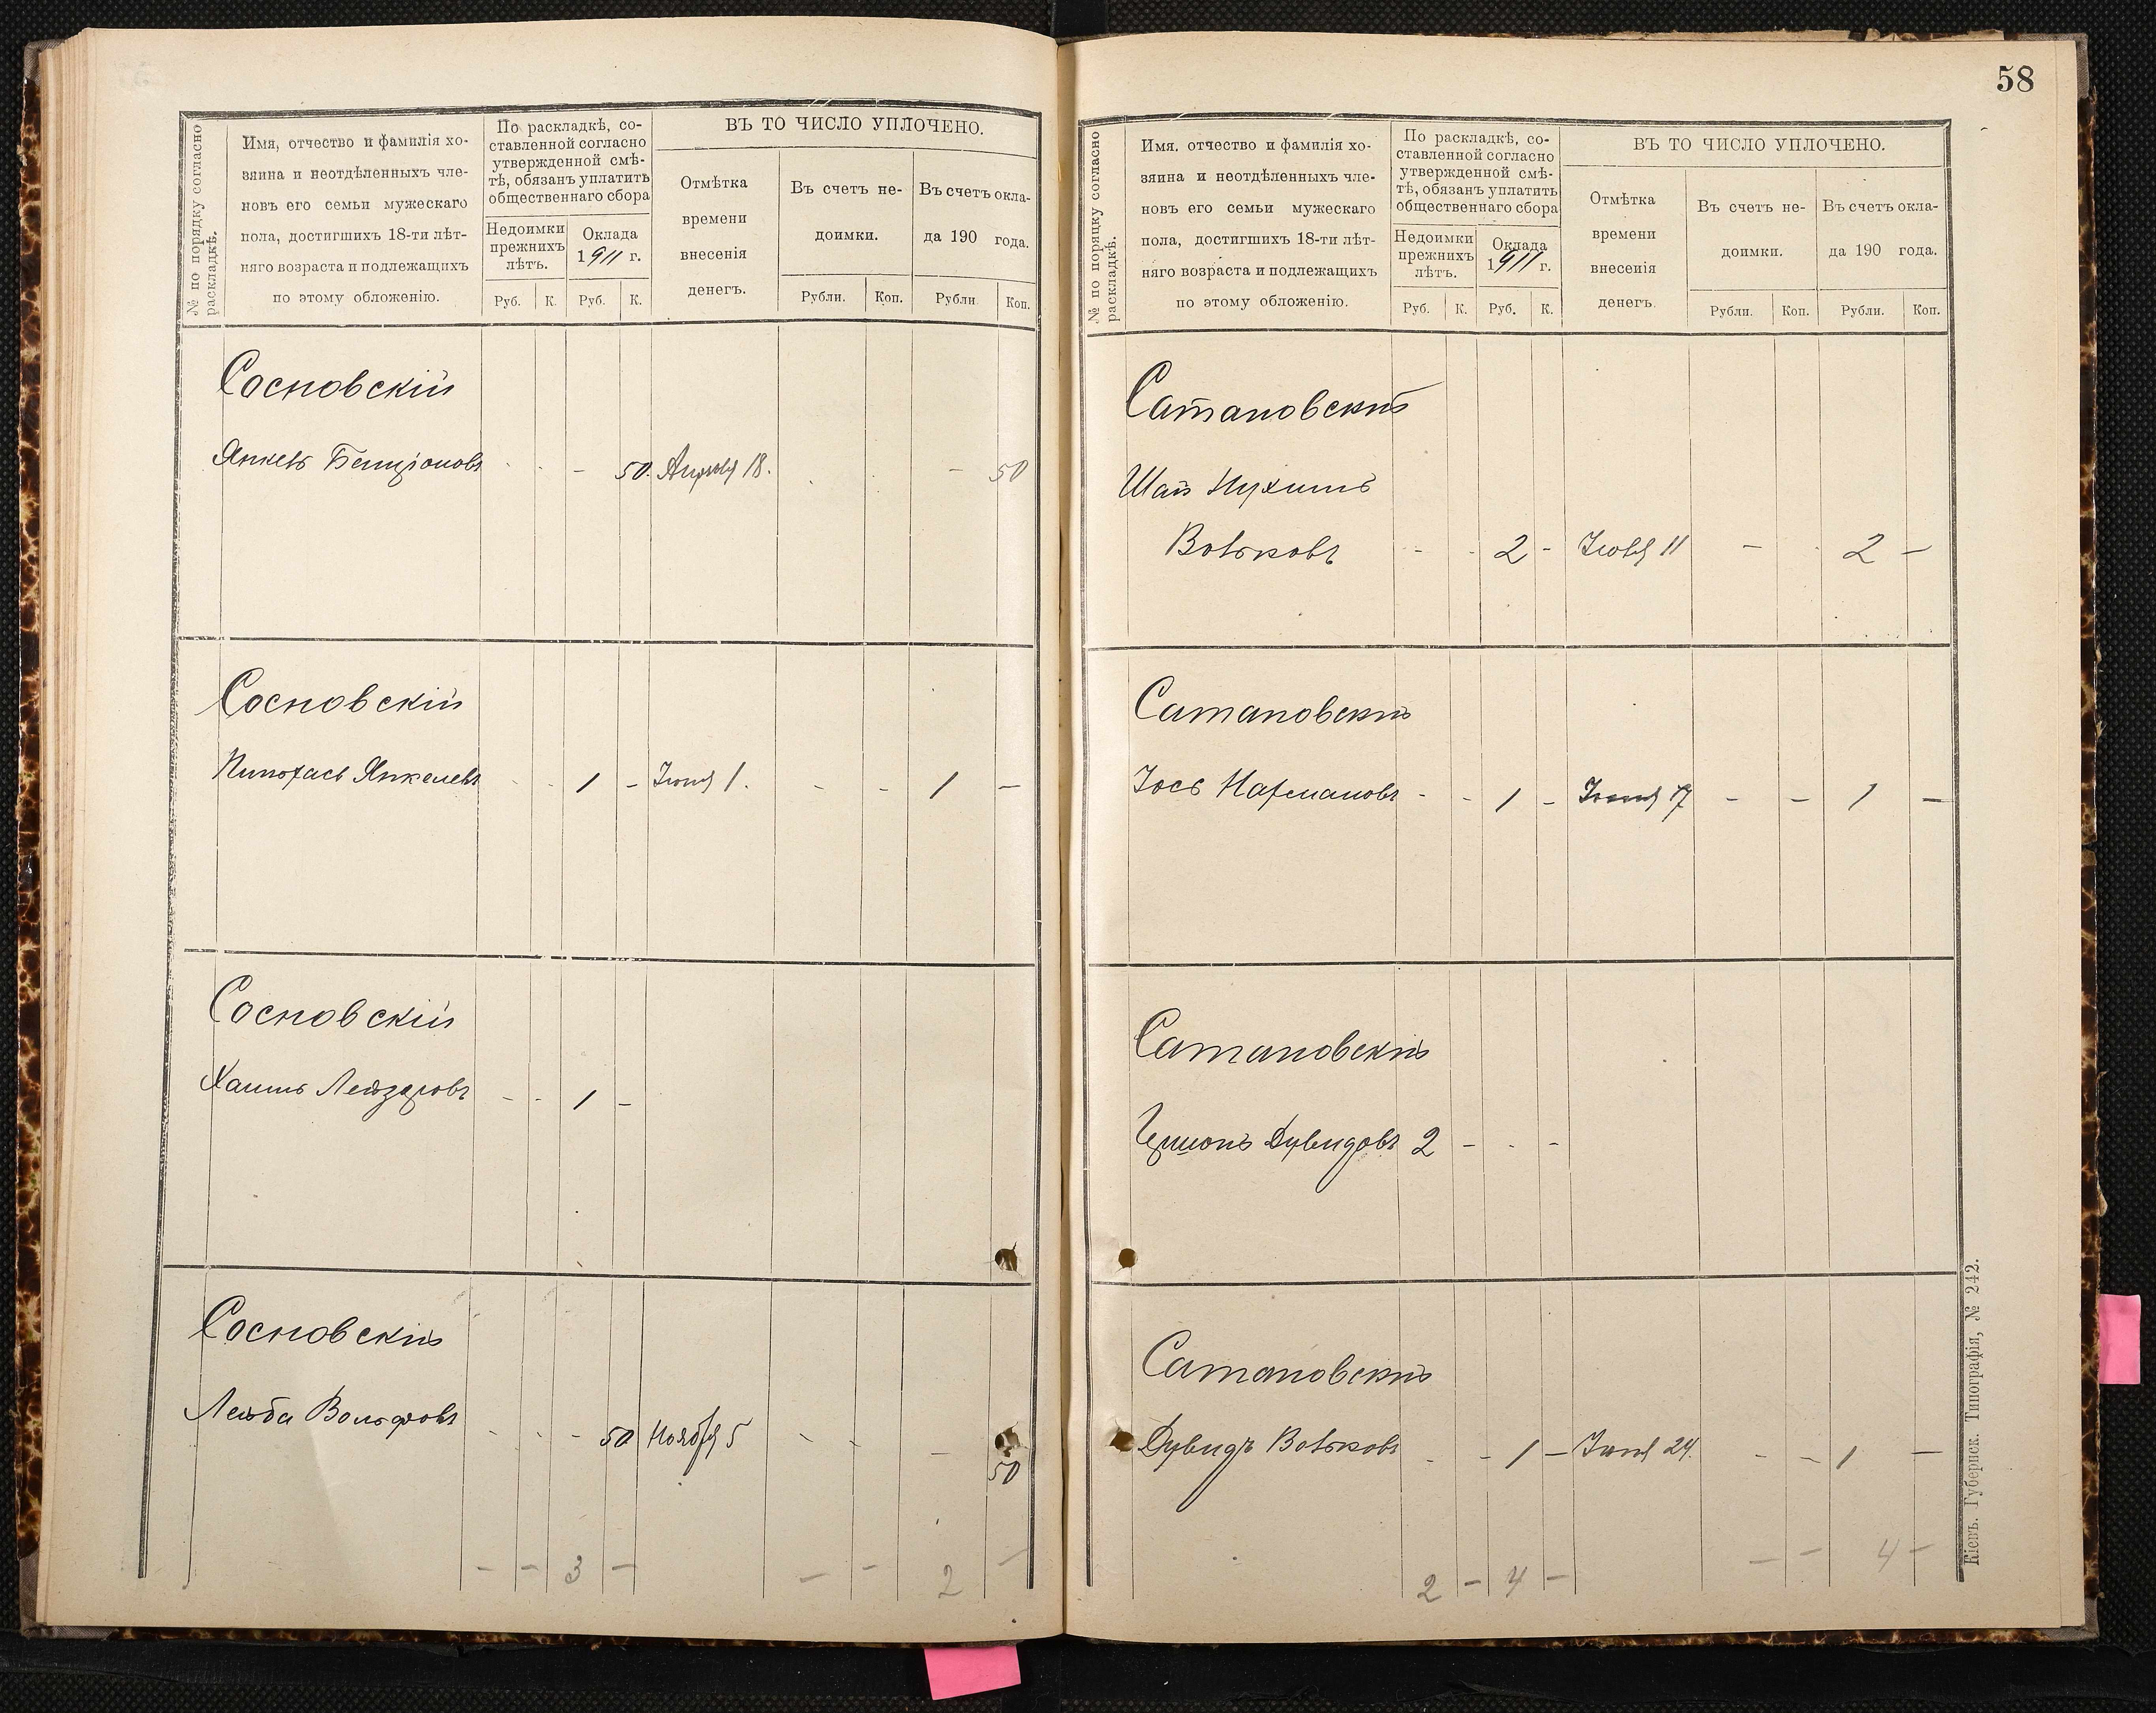 № по порядку согласно
раскладкѣ.
Имя, отчество и фамилія хо-
зяина и неотдѣленныхъ чле-
новъ его семьи мужескаго
пола, достигшихъ 18-ти лѣт-
няго возраста и подлежащихъ
по этому обложенію.
По раскладкѣ, со-
ставленной согласно
утвержденной смѣ-
тѣ, обязанъ уплатить
общественнаго сбора
Недоимки
прежнихъ
лѣтъ.
Оклада
1911 г.
Руб. К. Руб. К.
ВЪ ТО ЧИСЛО УПЛОЧЕНО.
Отмѣтка
времени
внесенія
денегъ.
Въ счетъ не-
доимки.
Въ счетъ окла-
да 190 года.
Рубли. Коп. Рубли Коп.
Сосновскій
Янкель Бенціоновъ - 50. Апрѣля 18. - 50
Сосновскій
Пинхасъ Янкелевъ - - 1 - Іюня 1. - - 1 -
Сосновскій
Хаимъ Лейзеровъ - - 1 -
Сосновскій
Лейба Вольфовъ - - - 50 Ноября 5 - - - 50
- - 3 - - - 2 -
58
№ по порядку согласно
раскладкѣ.
Имя, отчество и фамилія хо-
зяина и неотдѣленныхъ чле-
новъ его семьи мужескаго
пола, достигшихъ 18-ти лѣт-
няго возраста и подлежащихъ
по этому обложенію.
По раскладкѣ, со-
ставленной согласно
утвержденной смѣ-
тѣ, обязанъ уплатить
общественнаго сбора
Недоимки
прежнихъ
лѣтъ.
Оклада
1911 г.
Руб. К. Руб. К.
ВЪ ТО ЧИСЛО УПЛОЧЕНО.
Отмѣтка
времени
внесенія
денегъ.
Въ счетъ не-
доимки.
Въ счетъ окла-
да 190 года.
Рубли. Коп. Рубли. Коп.
Сатановскій
Нухимъ
Вольковъ - - 2 - 11 - 2 -
Сатановскій
Іось - - 1 - Іюня 17 - - 1 -
Сатановскій
Гершонъ Дувидовъ 2 - - -
Сатановскій
Дувидъ Вольковъ - - 1 - Іюня 24. - - 1 -
2 - 4 - - - 4 -
Кіевъ. Губернск. Типографія, № 242.